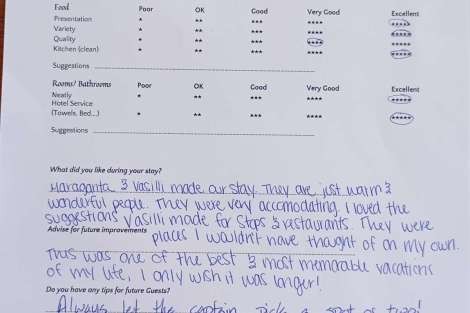 Food Poor OK Good Very Good Excellent
Presentation * ** *** **** *****
Variety * ** *** **** *****
Quality * ** *** **** *****
Kitchen (clean) * ** *** **** *****
Suggestions
Rooms/ Bathrooms Poor OK Good Very Good Excellent
Neatly * ** *** **** *****
Hotel Service
(Towels, Bed...) * ** *** **** *****
Suggestions
What did you like during your stay?
Maraganta & Vasilli made our stay. They are just warm &
wonderful people. They were very accomodating, I loved the
suggestions Vasilli made for stops & restaurants. They were
Advise for future improvements places I wouldn't have thought of on my own.
This was one of the best & most memorable vacations
of my life, I only wish it was longer!
Do you have any tips for future Guests?
Always let the captain pick a spot or two!